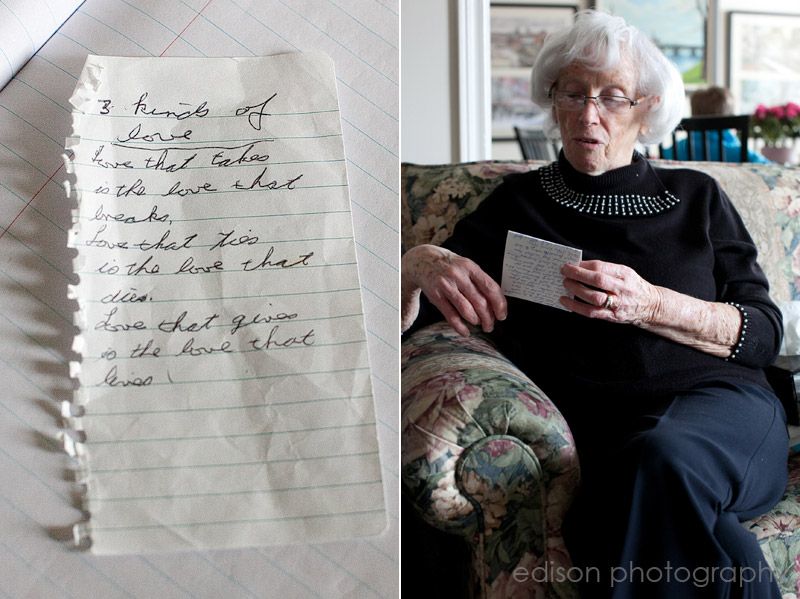 3 kinds of
love
Love that takes
is the love that
breaks,
Love that ties
is the love that
dies.
Love that gives
is the love that
lives!
edison photography